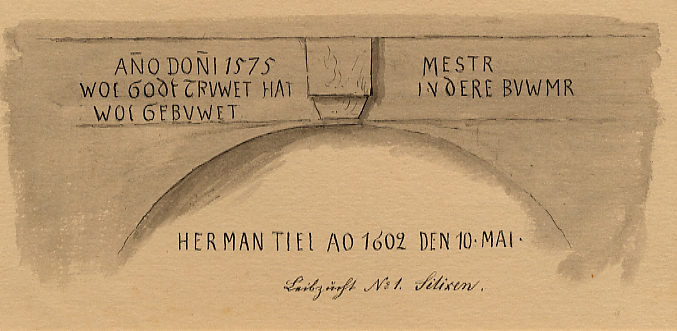 AÑO DOÑI 1575
WOL GODE TRVWET HAT
WOL GEBVWET
MESTR
IVDERE BVWMR
HERMAN TIEL AO 1602 DEN 10. MAI.
Leibzucht No 1. Silixen.